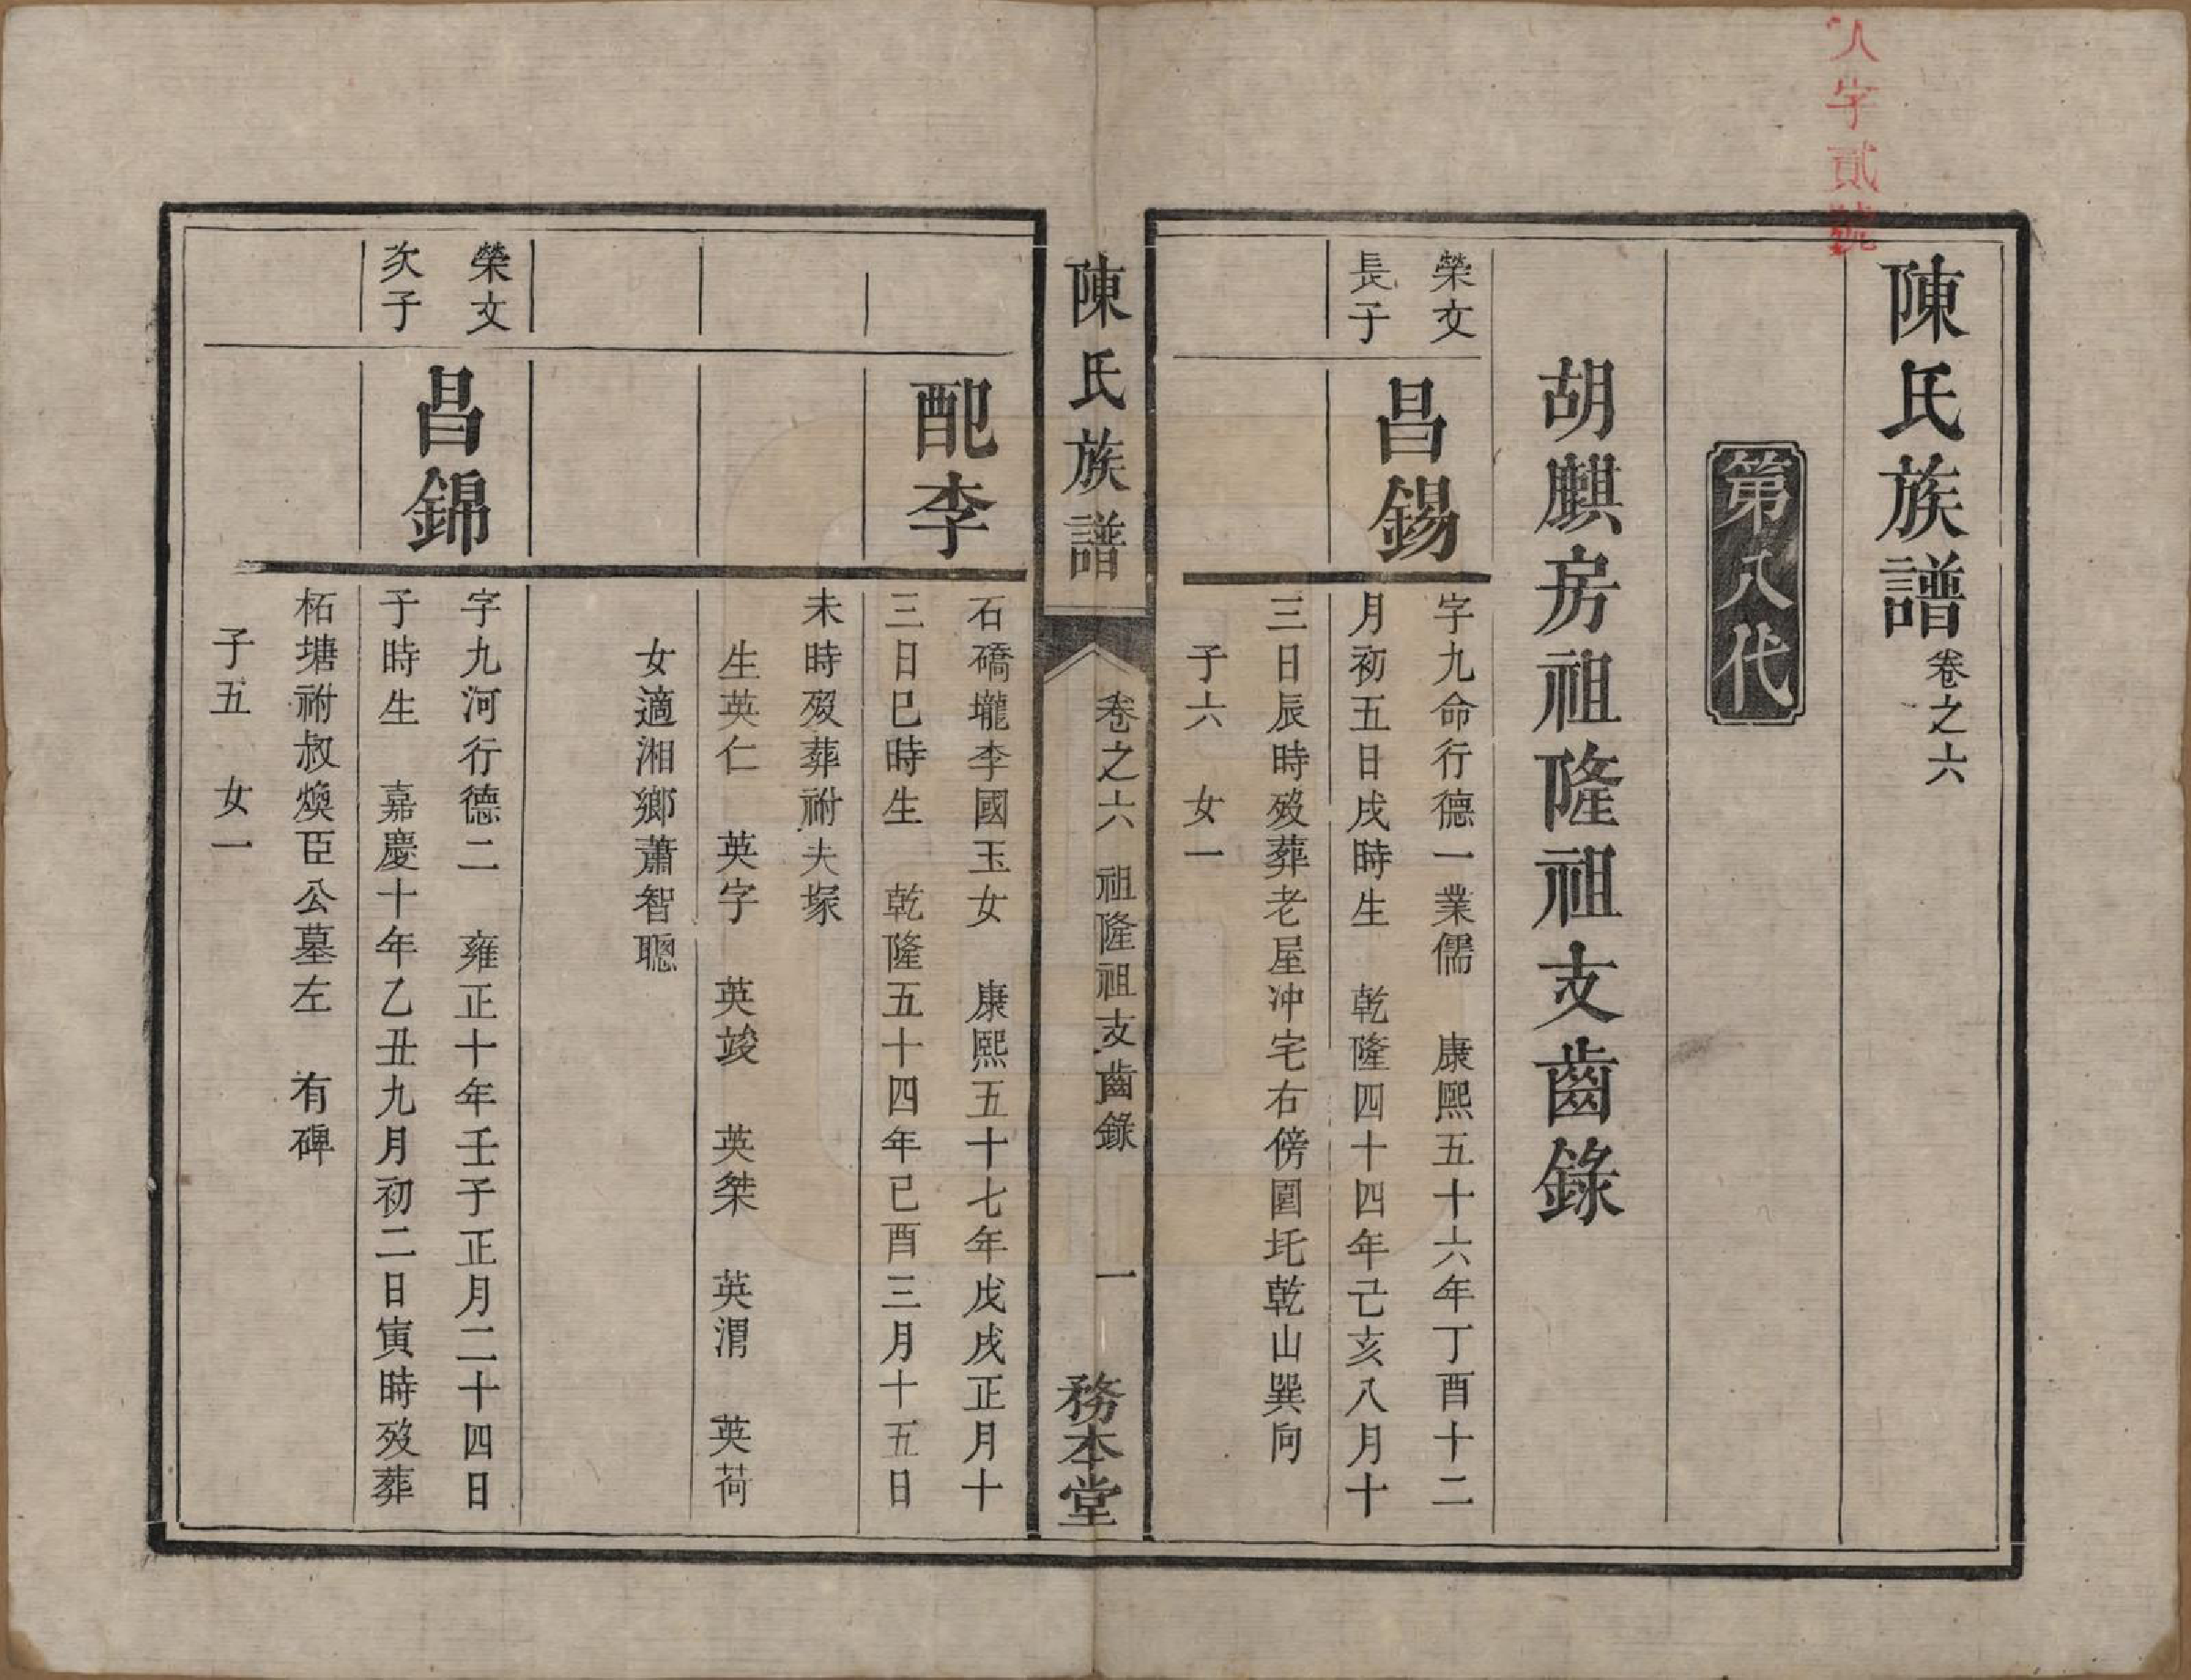 人字貳號
陳氏族譜卷之六
第八代
胡麒房祖隆祖支齒錄
榮文
長子
昌錫
字九命行德一業儒 康熙五十六年丁酉十二
月初五日戌時生 乾隆四十四年己亥八月十
三日辰時歿葬老屋冲宅右傍園圫乾山巽向
子六 女一
陳氏族譜
卷之六 祖隆祖支齒錄
一
務本堂
配李
石礄壠李國玉女 康熙五十七年戊戌正月十
三日巳時生 乾隆五十四年己酉三月十五日
未時歿葬祔夫塚
生英仁 英字 英竣 英桀 英渭 英荷
女適湘鄉蕭智聰
榮文
次子
昌錦
字九河行德二 雍正十年壬子正月二十四日
子時生 嘉慶十年乙丑九月初二日寅時歿葬
柘塘祔叔煥臣公墓左 有碑
子五 女一